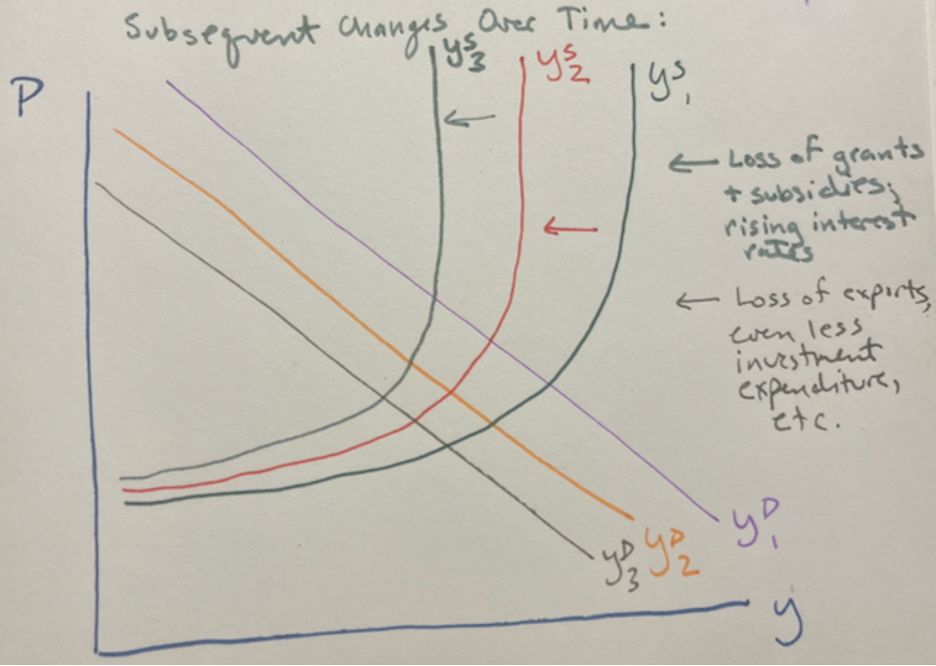 Subsequent Changes Over Time:
P
yS3
yS2
yS1
← Loss of grants
+ subsidies;
rising interest
rates
← Loss of exports,
even less
investment
expenditure,
etc.
yD1
yD2
yD3
y